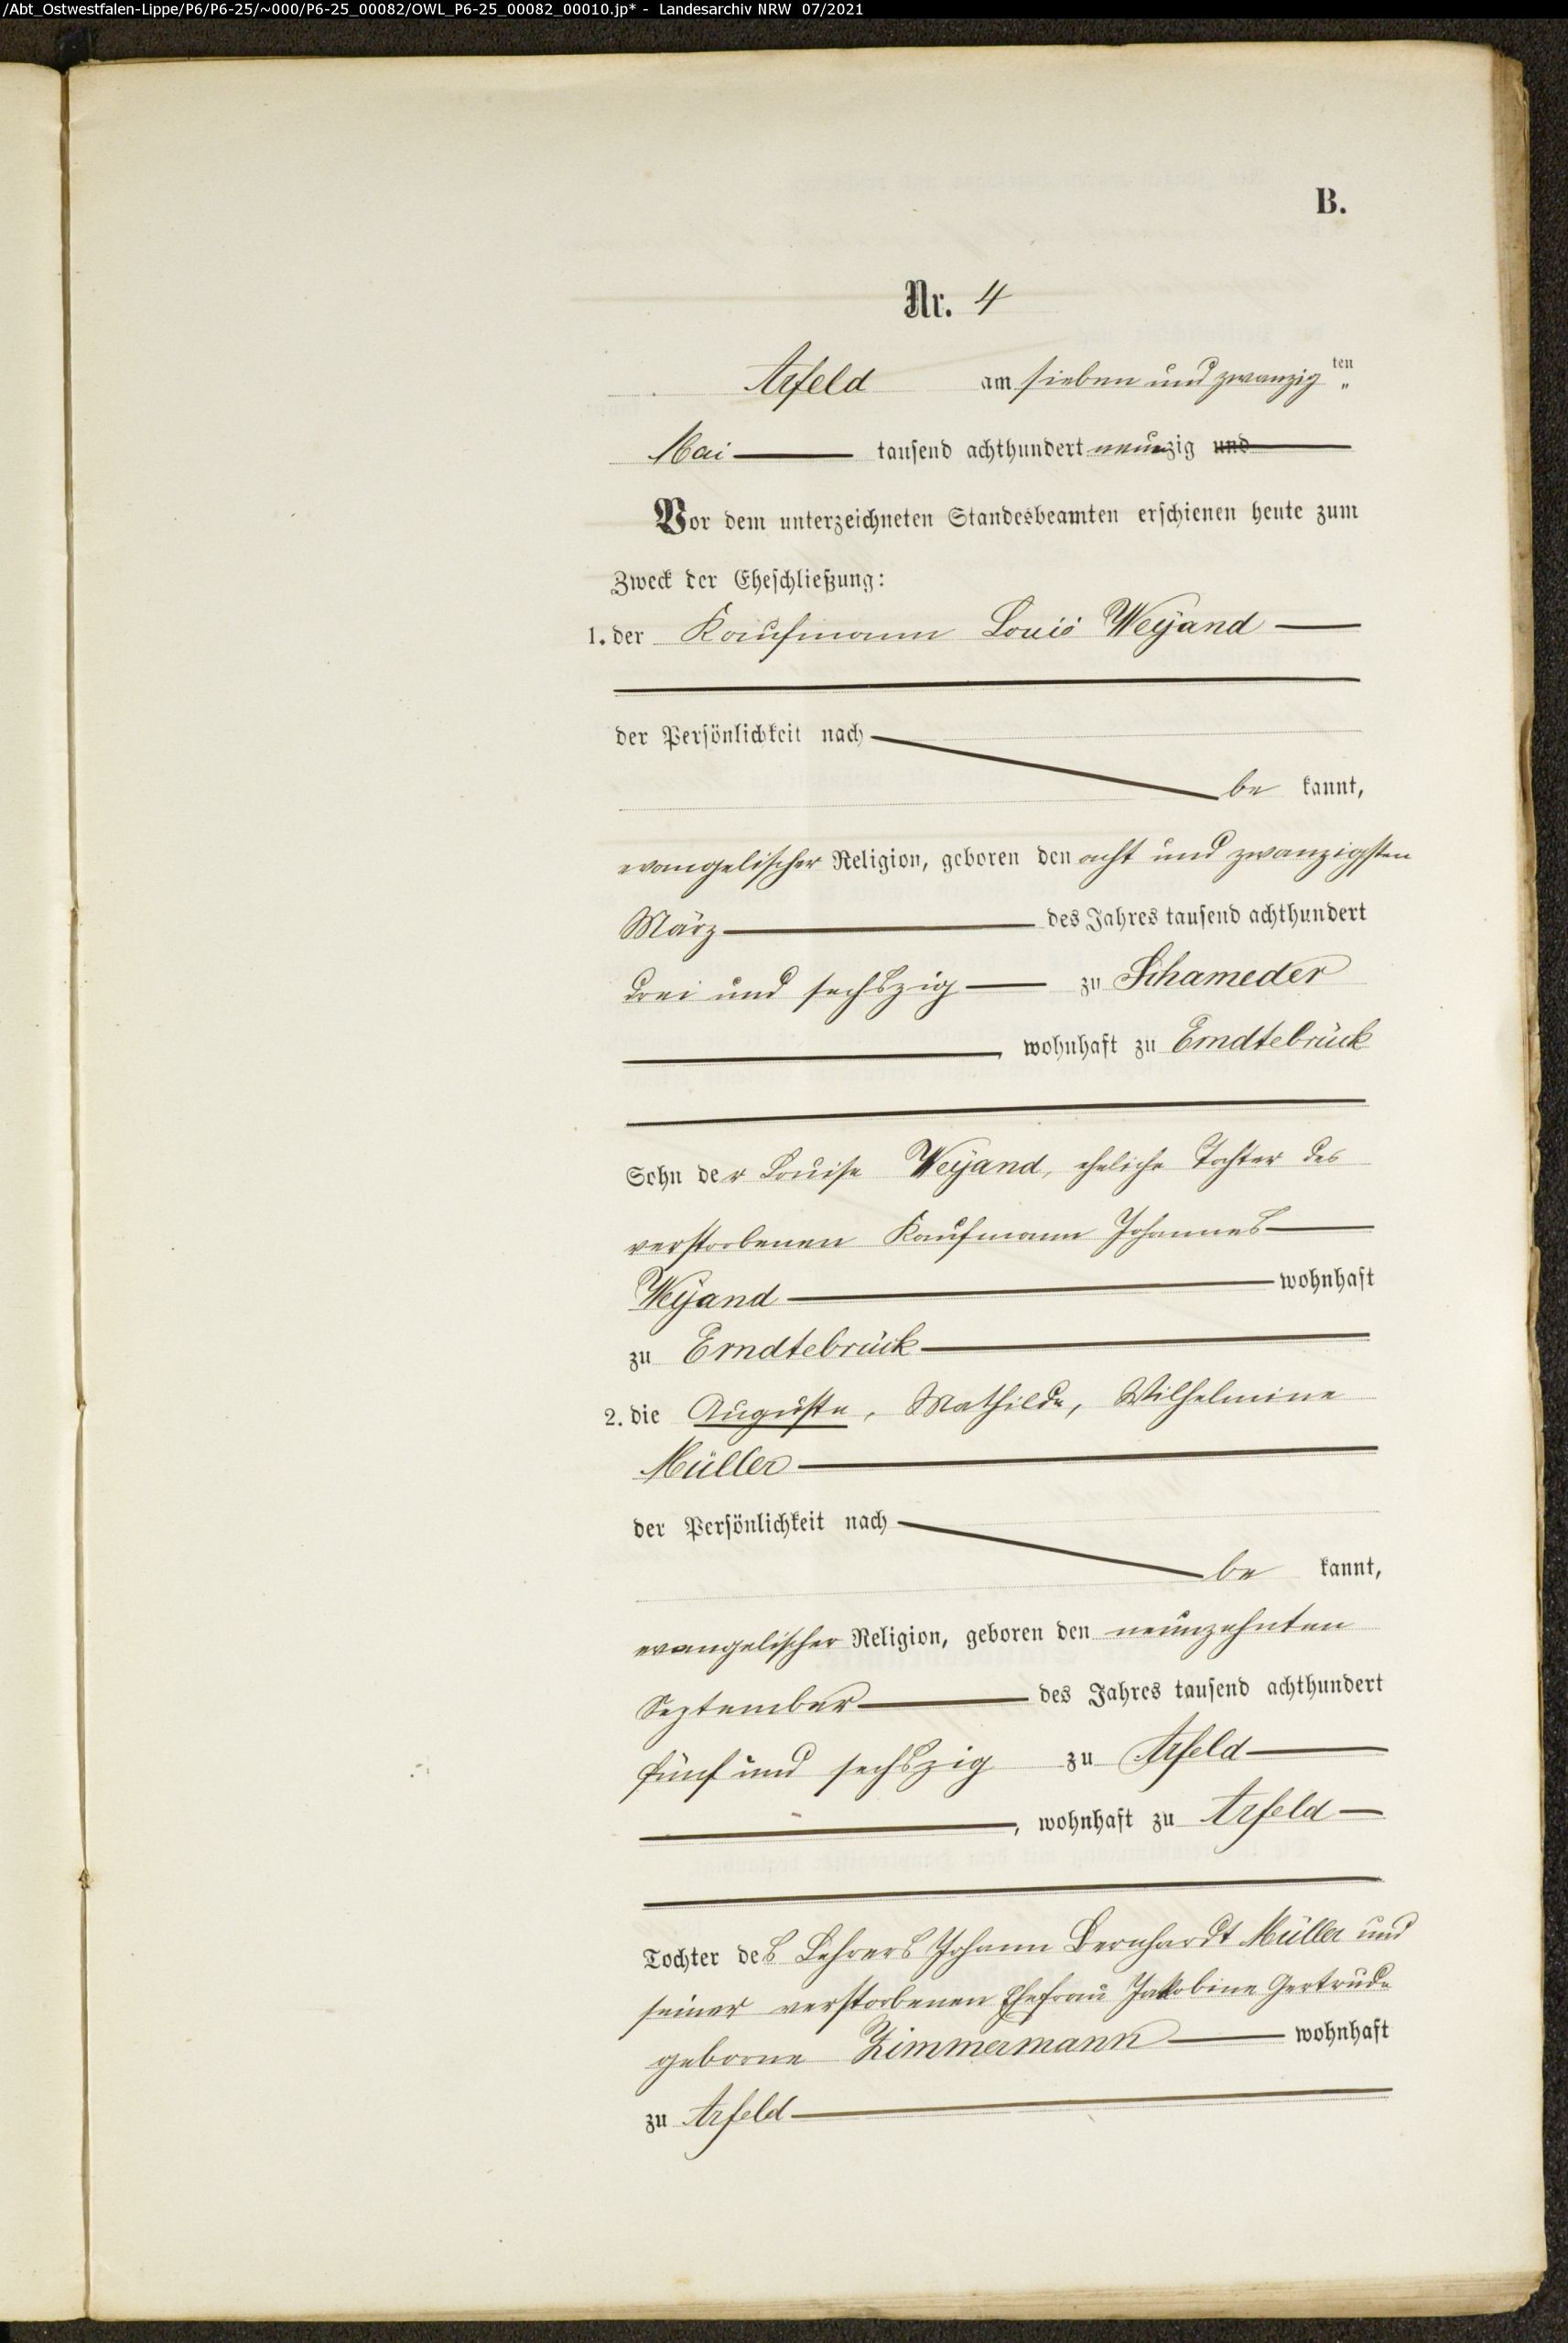 /Abt_Ostwestfalen-Lippe/P6/P6-25/~000/P6-25_00082/OWL_P6-25_00082_00010.jp* - Landesarchiv NRW 07/2021
B.
Nr. 4
Arfeld am sieben und zwanzig ten "
Mai tausend achthundert neunzig und
Vor dem unterzeichneten Standesbeamten erschienen heute zum
Zweck der Eheschließung:
1. der Kaufmann Louis Weÿand
der Persönlichkeit nach
be kannt,
evangelischer Religion, geboren den acht und zwanzigsten
März des Jahres tausend achthundert
drei und sechszig zu Schameder
, wohnhaft zu Erndtebrück
Sohn der Louise Weÿand, eheliche Tochter des
verstorbenen Kaufmann Johannes
Weÿand wohnhaft
zu Erndtebrück
2. die Auguste, Mathilde, Wilhelmine
Müller
der Persönlichkeit nach
be kannt,
evangelischer Religion, geboren den neunzehnten
September des Jahres tausend achthundert
fünf und sechszig zu Arfeld
, wohnhaft zu Arfeld
Tochter des Lehrers Johann Bernhardt Müller und
seiner verstorbenen Ehefrau Jakobine Gertrude
geborne Zimmermann wohnhaft
zu Arfeld